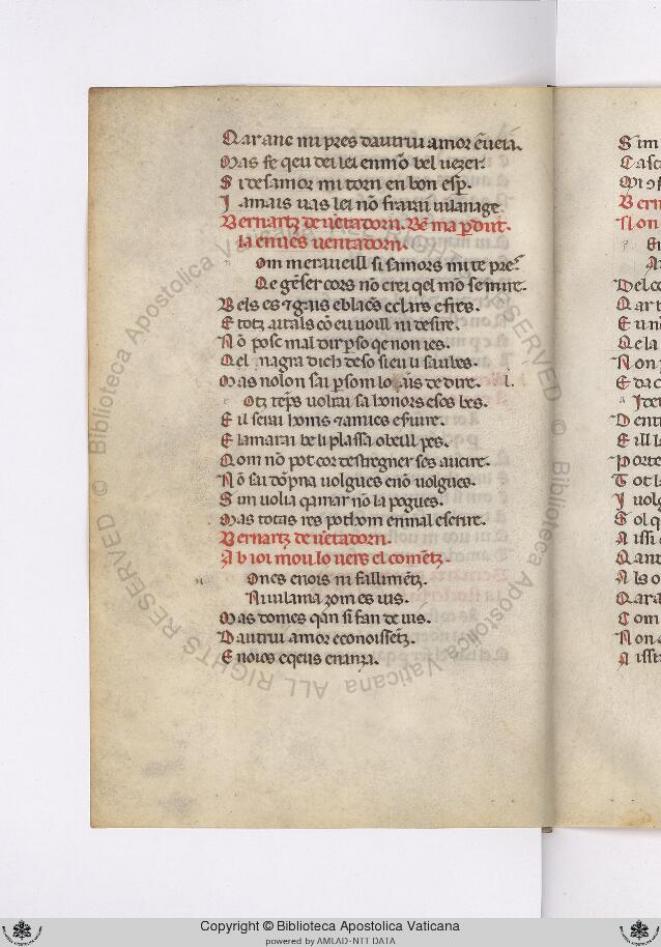 Qar anc mi pres dautrui amor ēueia.
Mas fe qeu dei lei en mō bel uezer.
Si desamor mi torn en bon esp̄.
Iamais uas lei nō farai uilanage
Bernartz de uētadorn. Bē ma ꝑdut.
la enues uentadorn.
om meraueill si samors mi te pres
Qe gēser cors nō crei qel mō se mire.
Bels es ⁊ grais e blācs e clars e fres.
E totz aitals cō eu uoill ni desire.
Nō posc mal dir ꝑso qe non ies.
Qel magra dich de so si eu li saubes.
Mas nolon sai ꝑsom lo lais de dire.
otz tēps uolrai sa honors e sos bes.
E il serai homs ⁊ amics e siuire.
E lamarai be li plassa o beill pes.
Qom nō pot cor destregner ses aucire.
Nō sai dōpna uolgues e nō uolgues.
Sim uolia qamar nō la pogues.
Mas totas res pot hom en mal escrire.
Bernartz de uētadorn.
Ab ioi mou lo uers el comētz.
Ones enois ni fallimētz.
Ni uilania zom es uis.
Mas domes qan si fan de uis.
Dautrui amor econoissētz.
Enoios e qeus enanza.
Sim
Bern
Non
Del co
Qar
Qe la
Non
E da
Dentr
E ill
Porte
Tot l
I uolg
Sol q
Aissi
Qant
Als o
Qar a
Com
Non
Aissi
Copyright © Biblioteca Apostolica Vaticana
powered by AMLAD-NTT DATA
© Biblioteca Apostolica Vaticana ALL RIGHTS RESERVED